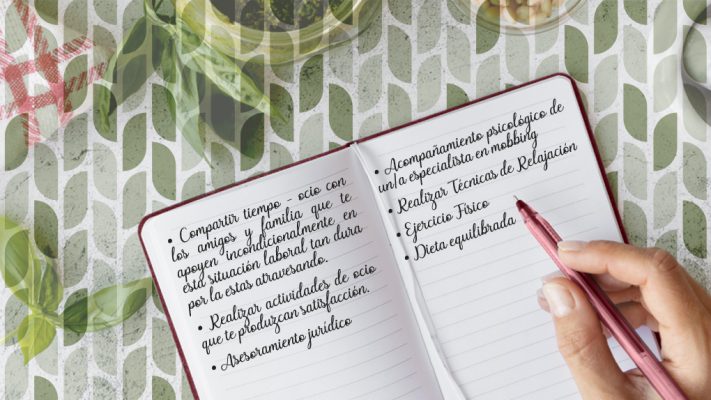 • Compartir tiempo - ocio con
los amigos y familia que te
apoyen incondicionalmente en
esta situación laboral tan dura
por la estas atravesando.
• Realizar actividades de ocio
que te produzcan satisfacción.
• Asesoramiento jurídico
• Acompañamiento psicológico de
un/a especialista en mobbing
• Realizar Técnicas de Relajación
• Ejercicio Físico
• Dieta equilibrada